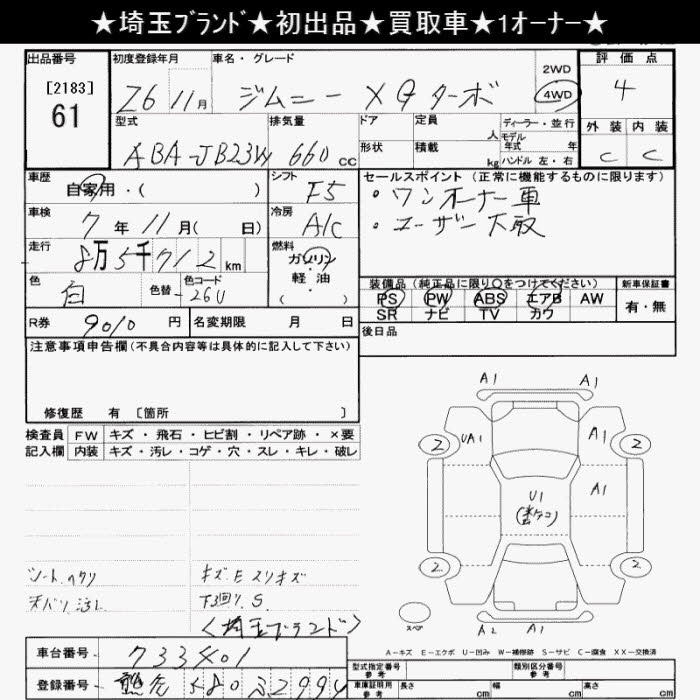 ★埼玉ブランド★初出品★買取車★1オーナー★
出品番号 初度登録年月 車名・グレード 評価点
[2183]
61
26 11月 ジムニー XGターボ 2WD 4WD 4
型式 排気量 ドア 定員 人 ディーラー・並行 外装 内装
モデル年式 年
ABA-JB23W 660cc 形状 積載 kg ハンドル 左・右 C C
車歴 シフト セールスポイント(正常に機能するものに限ります)
自家用・( ) F5 ・ワンオーナー車
車検 冷房 ・ユーザー買取
7年11月( 日) A/C
走行 燃料
8万5千712km ガソリン・軽油
( )
色 白 色替 色コード -26U
装備品(純正品に限り○をつけてください) 新車保証書
PS PW ABS エアB AW 有・無
SR ナビ TV カワ
R券 9010円 名変期限 月 日 後日品
注意事項申告欄(不具合内容等は具体的に記入して下さい)
修復歴 有 [箇所 ]
検査員 FW キズ・飛石・ヒビ割・リペア跡・×要
記入欄 内装 キズ・汚レ・コゲ・穴・スレ・キレ・破レ
A1 A1
2 UA1 A1 2
U1 A1
2 2
スペア
A2 A1
シート ヘタリ キズEスリキズ
天バリ 汚レ 下回リ S.
<埼玉ブランド>
A-キズ E-エクボ U-凹み W-補修跡 S-サビ C-腐食 XX-交換済
車台番号 733401
型式指定番号 参考 類別区分番号 参考
登録番号 熊谷 580 3299
車庫証明用 参考 長さ cm 幅 cm 高さ cm